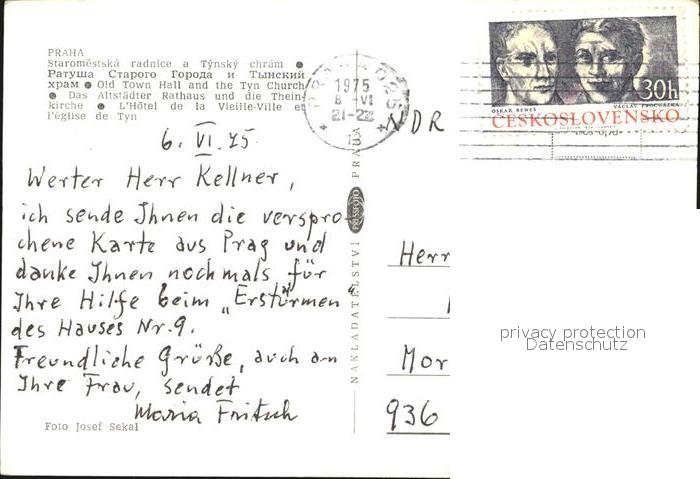 PRAHA
Staroměstská radnice a Týnský chrám ●
Ратуша Старого Города и Тынский
храм ● Old Town Hall and the Tyn Church
● Das Altstädter Rathaus und die Thein-
kirche ● L'Hôtel de la Vieille-Ville et
l'église de Tyn
6. VI. 75
Werter Herr Kellner,
ich sende Ihnen die verspro-
chene Karte aus Prag und
danke Ihnen nochmals für
Ihre Hilfe beim „Erstürmen“
des Hauses Nr. 9.
Freundliche Grüße, auch an
Ihre Frau, sendet
Maria Fritsch
Foto Josef Sekal
NAKLADATELSTVÍ PRESSFOTO PRAHA
1975
8 VI
21-22
NDR
OSKAR BENEŠ VÁCLAV PROCHÁZKA
30h
ČESKOSLOVENSKO
Herr
Mor
936
privacy protection
Datenschutz